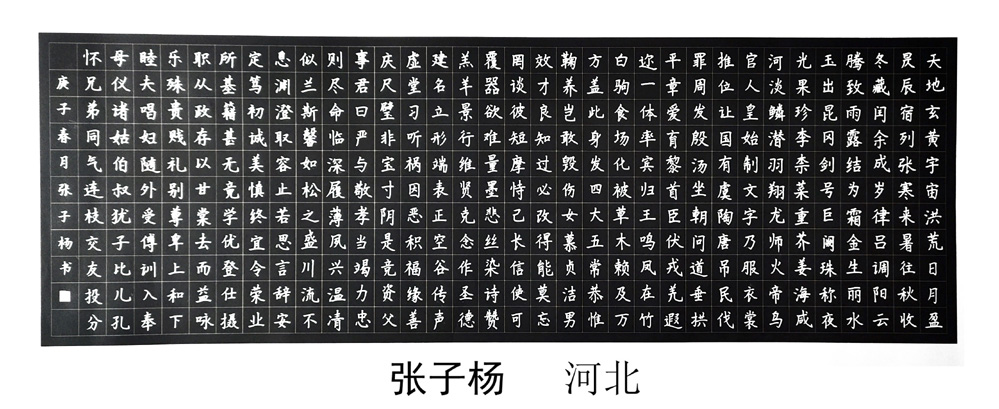 天地玄黄宇宙洪荒日月盈
昃辰宿列张寒来暑往秋收
冬藏闰余成岁律吕调阳云
腾致雨露结为霜金生丽水
玉出昆冈剑号巨阙珠称夜
光果珍李柰菜重芥姜海咸
河淡鳞潜羽翔龙师火帝鸟
官人皇始制文字乃服衣裳
推位让国有虞陶唐吊民伐
罪周发殷汤坐朝问道垂拱
平章爱育黎首臣伏戎羌遐
迩一体率宾归王鸣凤在竹
白驹食场化被草木赖及万
方盖此身发四大五常恭惟
鞠养岂敢毁伤女慕贞洁男
效才良知过必改得能莫忘
罔谈彼短摩恃己长信使可
覆器欲难量墨悲丝染诗赞
羔羊景行维贤克念作圣德
建名立形端表正空谷传声
虚堂习听祸因恶积福缘善
庆尺璧非宝寸阴是竞资父
事君曰严与敬孝当竭力忠
则尽命临深履薄夙兴温凊
似兰斯馨如松之盛川流不
息渊澄取容止若思言辞安
定笃初诚美慎终宜令荣业
所基籍甚无竟学优登仕摄
职从政存以甘棠去而益咏
乐殊贵贱礼别尊卑上和下
睦夫唱妇随外受傅训入奉
母仪诸姑伯叔犹子比儿孔
怀兄弟同气连枝交友投分
庚子春月张子杨书
张子杨 河北